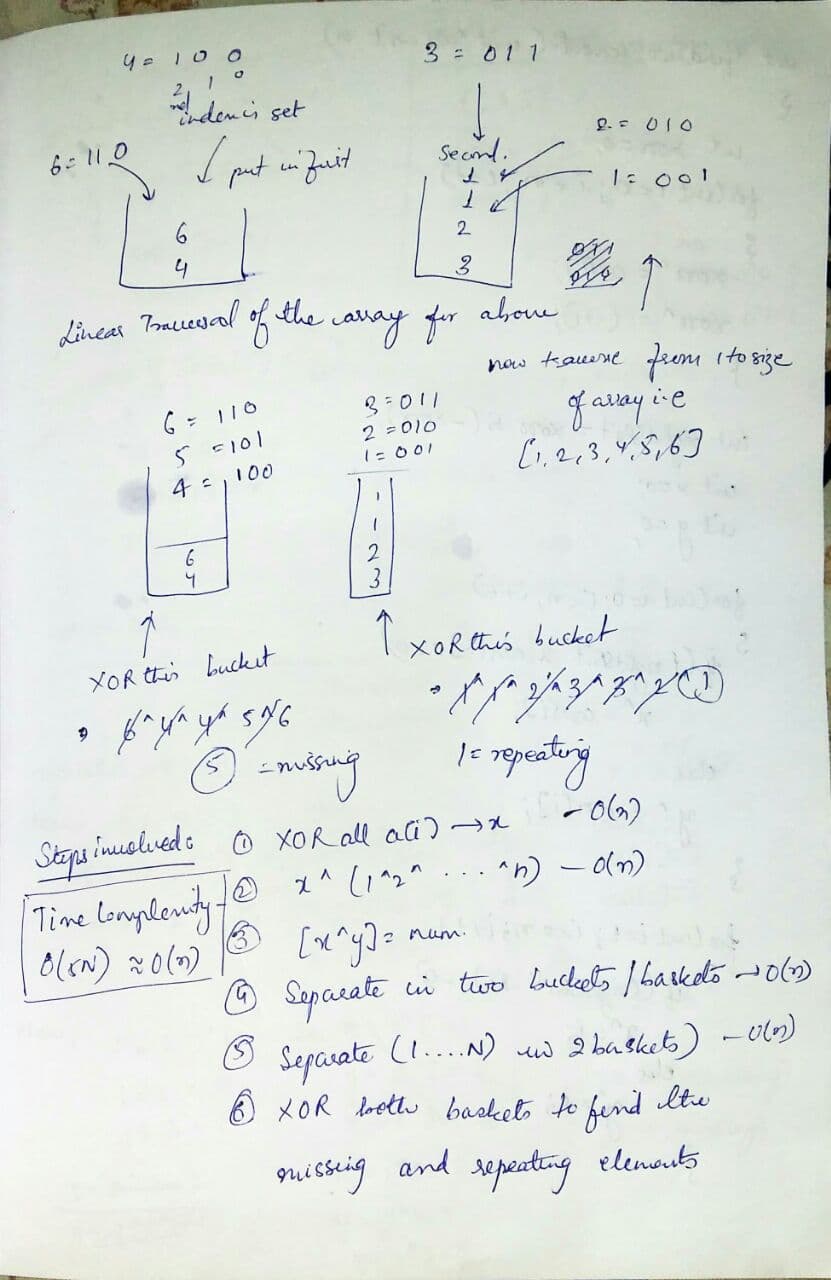 4 = 1 0 0
2 1 0
nd
index is set
put in first
6 = 110
6
4
3 = 011
Second.
2 = 010
1 = 001
1
1
2
3
Linear Traversal of the array for above
now traverse from 1 to size
of array i.e
[1, 2, 3, 4, 5, 6]
6 = 110
5 = 101
4 = 100
6
4
3 = 011
2 = 010
1 = 001
1
1
2
3
XOR this bucket
6^4^4^5^6
5 = missing
XOR this bucket
1^1^2^3^3^2^1
1 = repeating
Steps involved:
① XOR all a[i] → x - O(n)
② x ^ (1^2^ ... ^n) - O(n)
③ [x^y] = num.
④ Separate in two buckets / baskets → O(n)
⑤ Separate (1....N) in 2 baskets) - O(n)
⑥ XOR both baskets to find the
missing and repeating elements
Time Complexity -
O(5N) ≈ O(n)